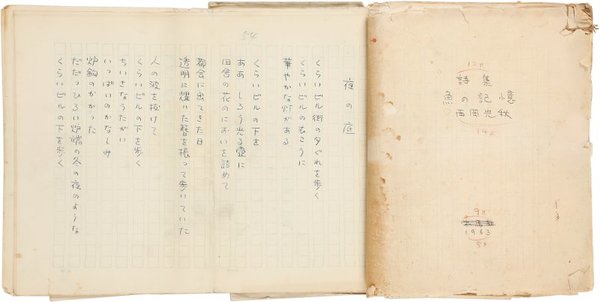 12ポ
詩集
魚の記憶
西岡光秋
14ポ
9ポ
1963
5ポ
54
夜の底
くらいビル街の夕ぐれを歩く
くらいビルのむこうに
華やかな灯がある
くらいビルの下を
ああ しろく光る壷に
田舎の花のにおいを詰めて
都会に出てきた日
透明に燿いた 振って歩いていた
人の波を抜けて
くらいビルの下を歩く
ちいさなうたがい
いっぱいのかなしみ
炉鈎のかかった
だだっぴろい炉端の冬の夜のような
くらいビルの下を歩く